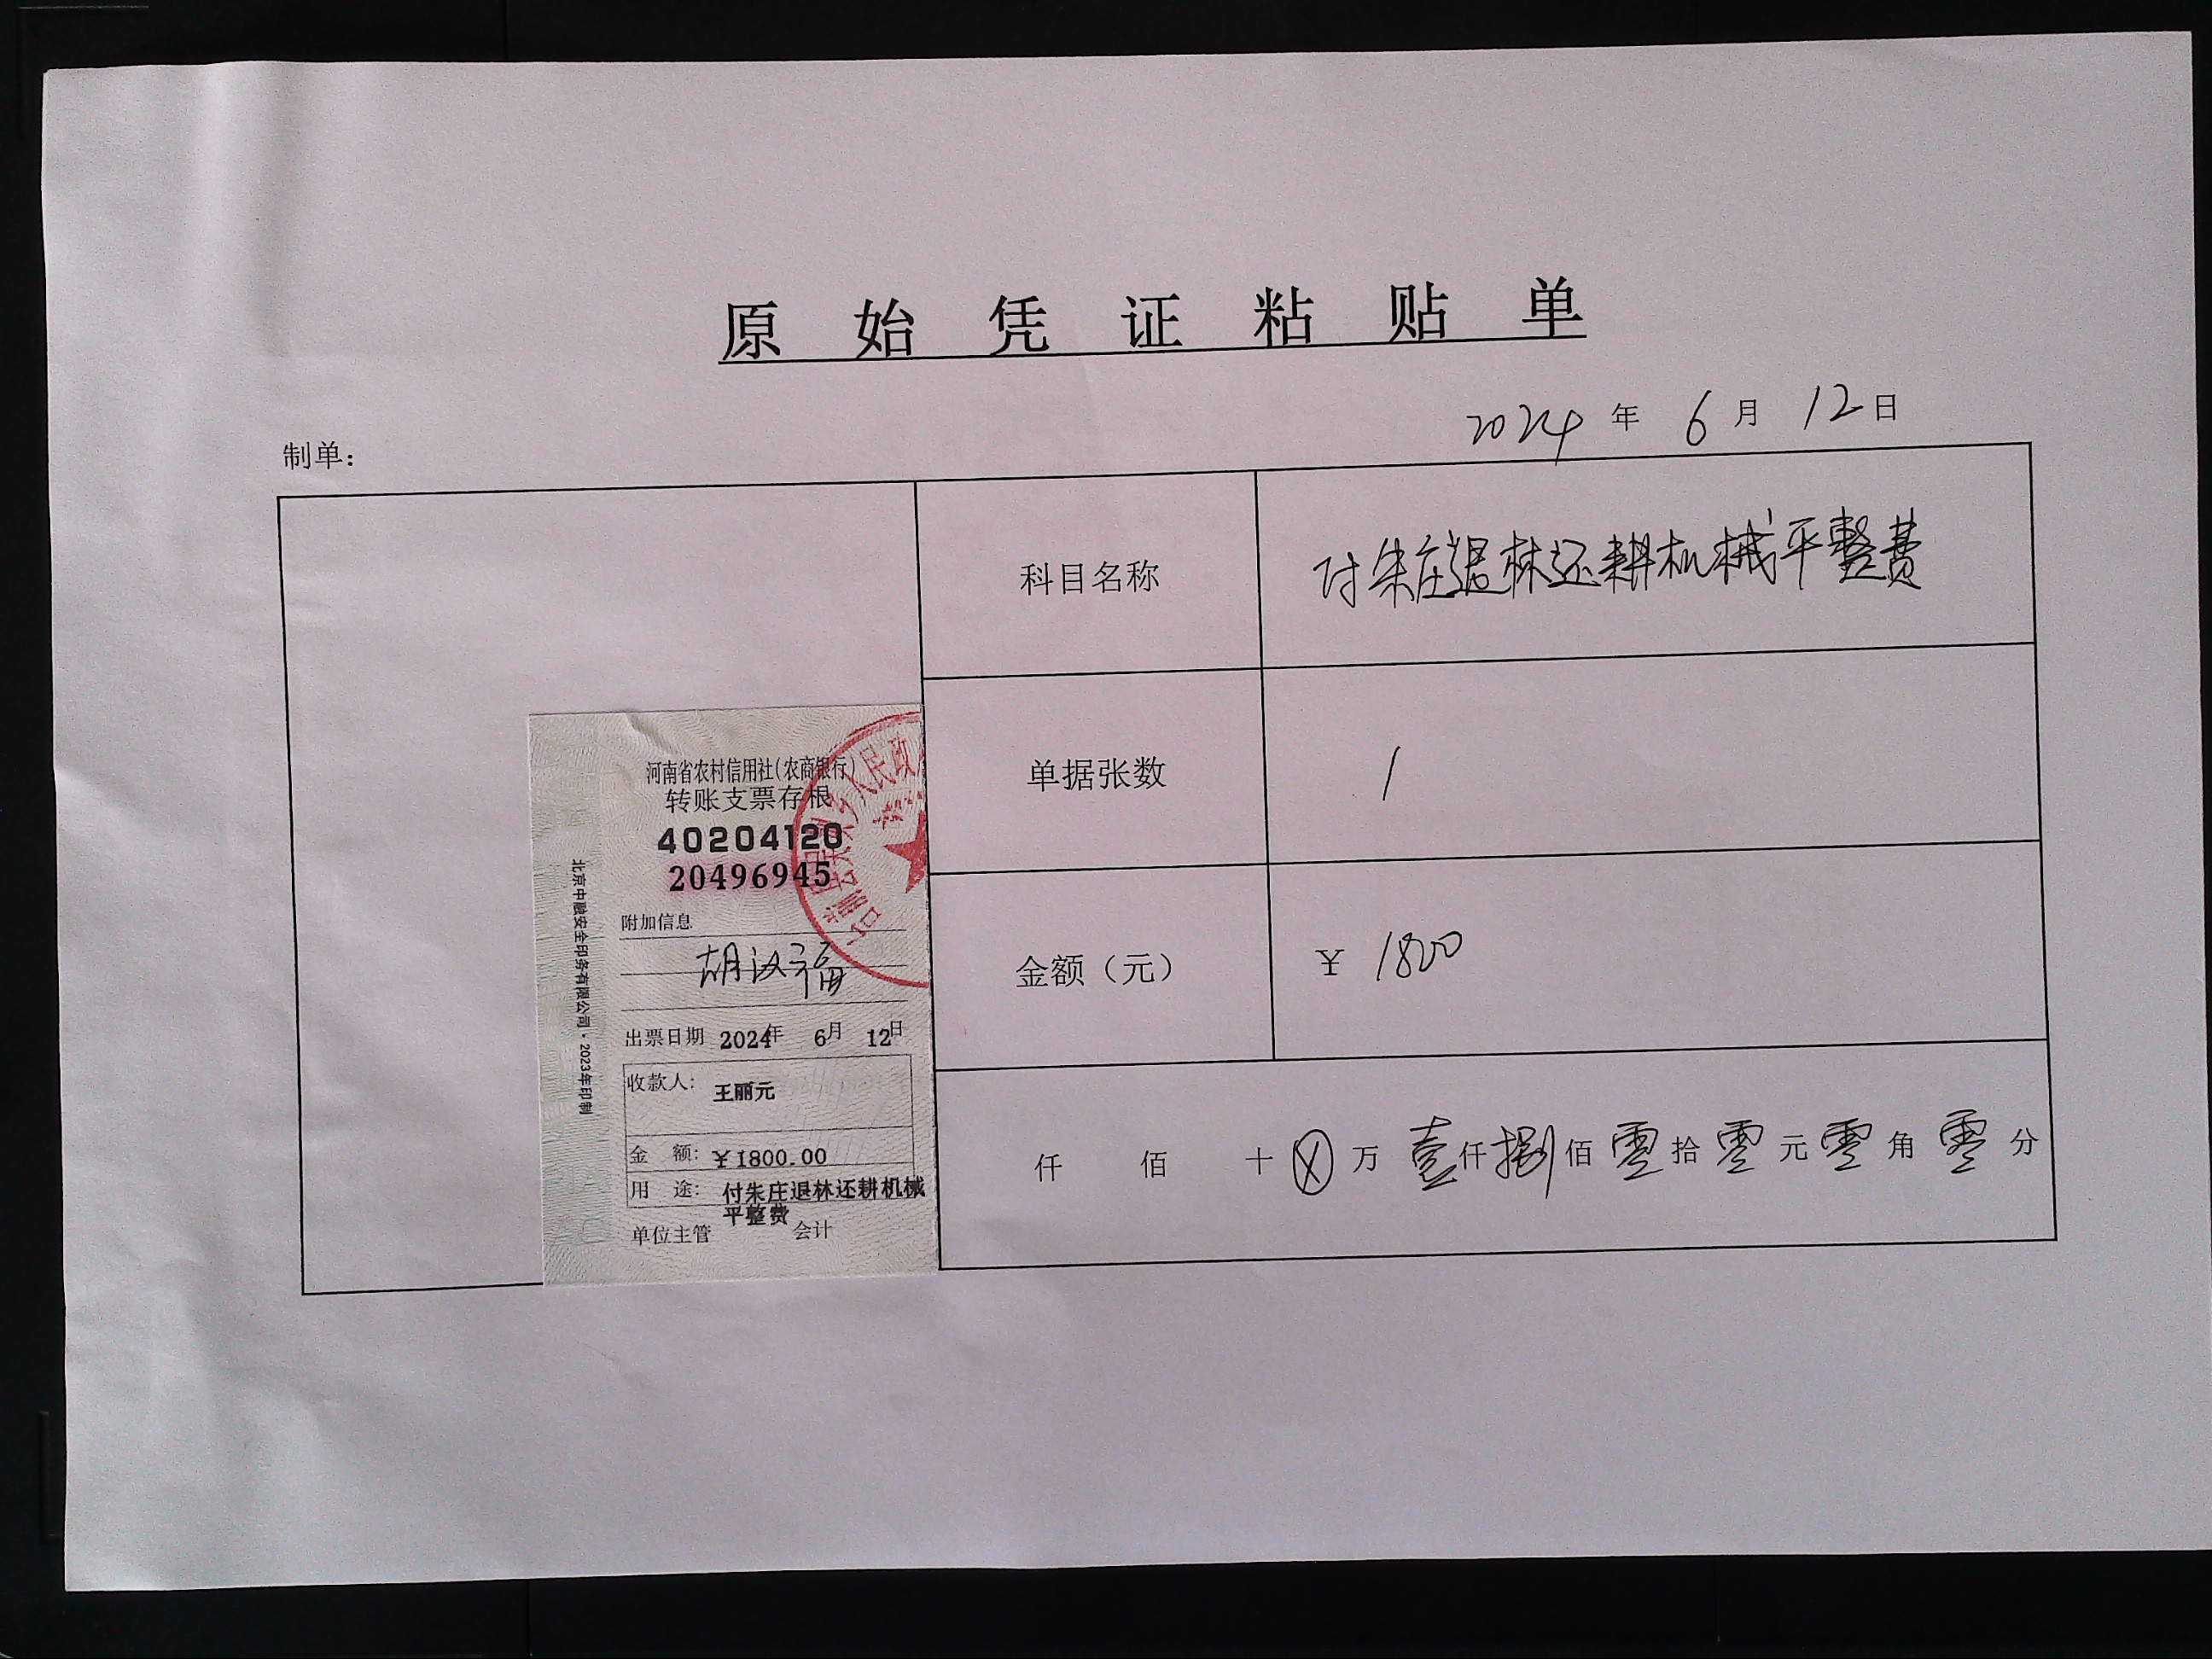 原始凭证粘贴单
2024年6月12日
制单:
科目名称 付朱庄退林还耕机械平整费
单据张数 1
金额（元） ¥ 1800
仟 佰 十 ⊗ 万 壹仟捌佰零拾零元零角零分
河南省农村信用社(农商银行)
转账支票存根
40204120
20496945
附加信息
胡汉福
出票日期 2024年 6月 12日
收款人: 王丽元
金 额: ¥1800.00
用 途: 付朱庄退林还耕机械
平整费
单位主管 会计
北京中融安全印务有限公司·2023年印制
人民政